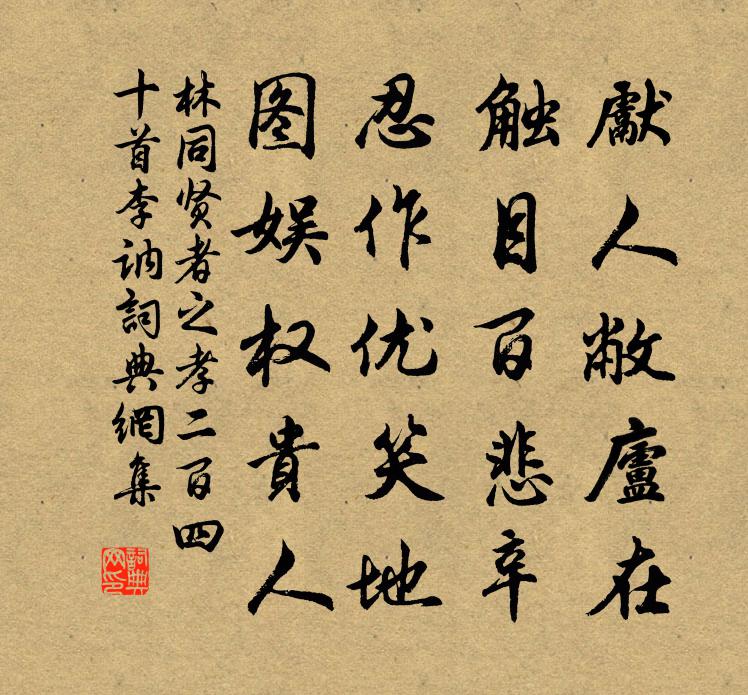 獻人敝廬在
触目百悲辛
忍作优笑地
图娱权貴人
林同贤者之孝二百四
十首李讷詞典網集
詞典网印